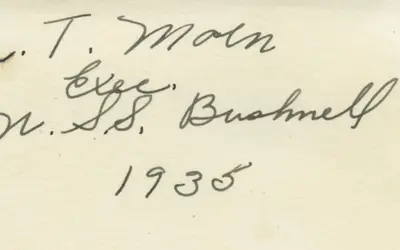 . T. Moen
Exec.
SS. Bushnell
1935